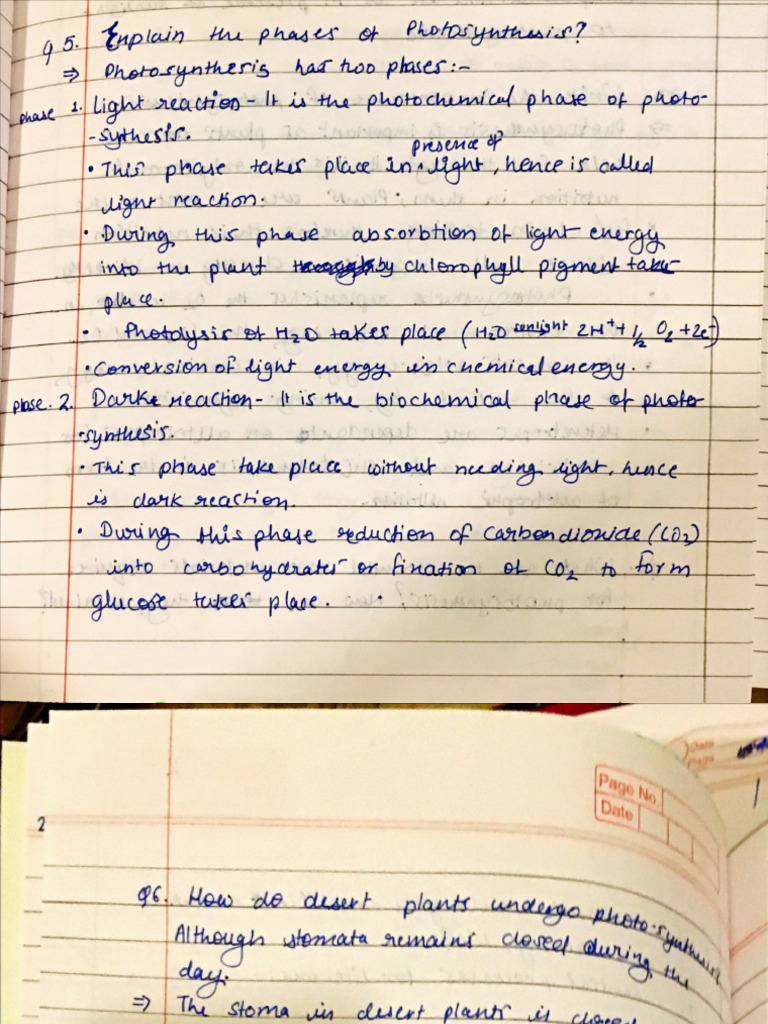 Q 5. Explain the phases of Photosynthesis?
⇒ Photosynthesis has two phases:-
phase 1. Light reaction - It is the photochemical phase of photo-
-sythesis.
• This phase takes place in presence of light, hence is called
light reaction.
• During this phase absorbtion of light energy
into the plant by chlorophyll pigment take
place.
• Photolysis of H₂O takes place (H₂O sunlight 2H⁺ + 1/2 O₂ + 2e⁻)
• Conversion of light energy in chemical energy.
phase. 2. Dark reaction - It is the biochemical phase of photo-
-synthesis.
• This phase take place without needing light, hence
is dark reaction.
• During this phase reduction of carbondioxide (CO₂)
into carbohydrates or fixation of CO₂ to form
glucose takes place.
Page No
Date
Date
Page
2
Q6. How do desert plants undergo photo-synthesis
Although stomata remains closed during the
day.
⇒ The stoma in desert plants is closed